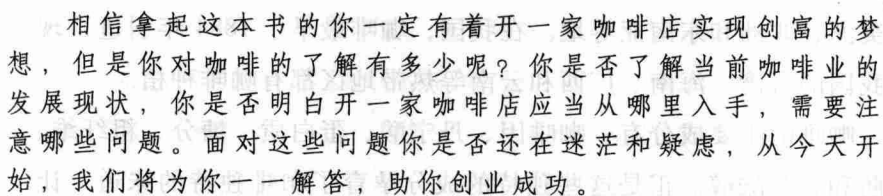 相信拿起这本书的你一定有着开一家咖啡店实现创富的梦
想，但是你对咖啡的了解有多少呢？你是否了解当前咖啡业的
发展现状，你是否明白开一家咖啡店应当从哪里入手，需要注
意哪些问题。面对这些问题你是否还在迷茫和疑虑，从今天开
始，我们将为你一一解答，助你创业成功。